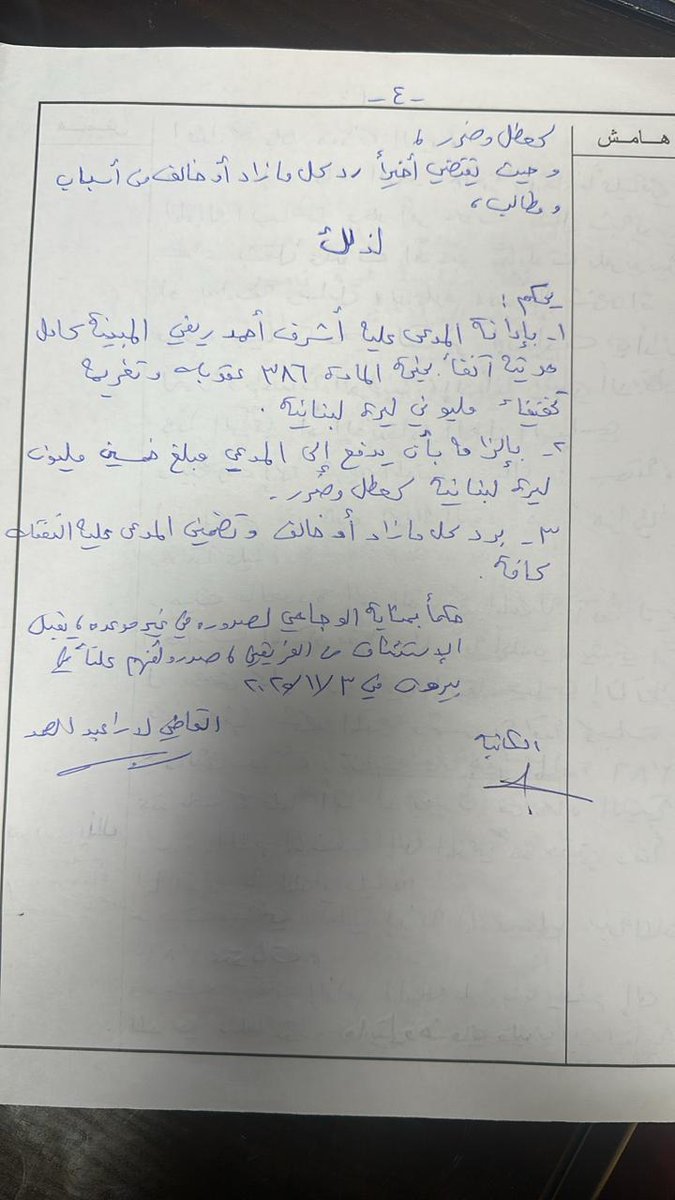 -٤-
هامش
كعطل وضرر ،
وحيث يقتضي أخيراً رد كل ما زاد أو خالف من أسباب
ومطالب،
لذلك
يحكم :
١- بإدانة المدعى عليه أشرف أحمد ريفي المبينة كامل
هويته آنفاً بجنحة المادة ٣٨٦ عقوبات وتغريمه
تخفيفاً مليوني ليرة لبنانية .
٢- بإلزامه بأن يدفع إلى المدعي مبلغ خمسين مليون
ليرة لبنانية كعطل وضرر.
٣- برد كل ما زاد أو خالف وتضمين المدعى عليه النفقات
كافة.
حكماً بمثابة الوجاهي لصدوره في غير موعده، يقبل
الإستئناف من الفريقين، صدر وأفهم علناً في
بيروت في
الكاتبة
القاضي لارا عبد الصمد